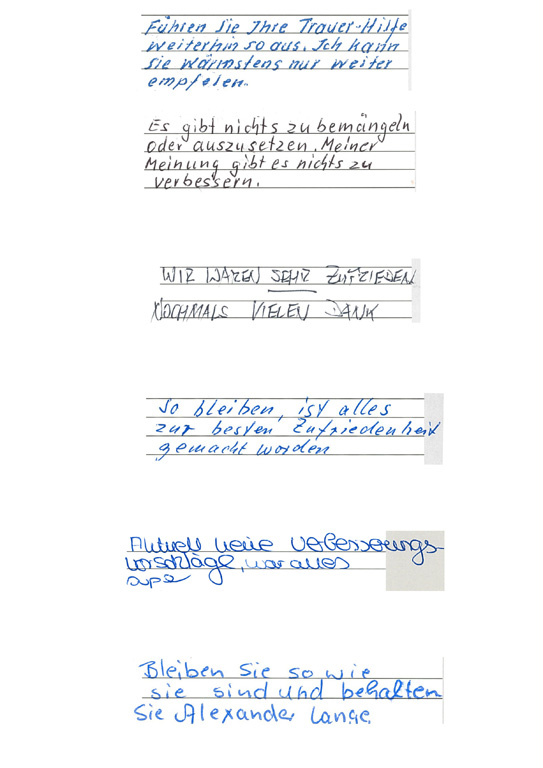 Führen Sie Ihre Trauer-Hilfe
weiterhin so aus. Ich kann
sie wärmstens nur weiter
empfelen.
Es gibt nichts zu bemängeln
oder auszusetzen. Meiner
Meinung gibt es nichts zu
verbessern.
WIR WAREN SEHR ZUFRIEDEN
NOCHMALS VIELEN DANK
So bleiben, ist alles
zur besten Zufriedenheit
gemacht worden
Aktuell keine Verbesserungs-
vorschläge, war alles
supe
Bleiben Sie so wie
sie sind und behalten
Sie Alexander Lange